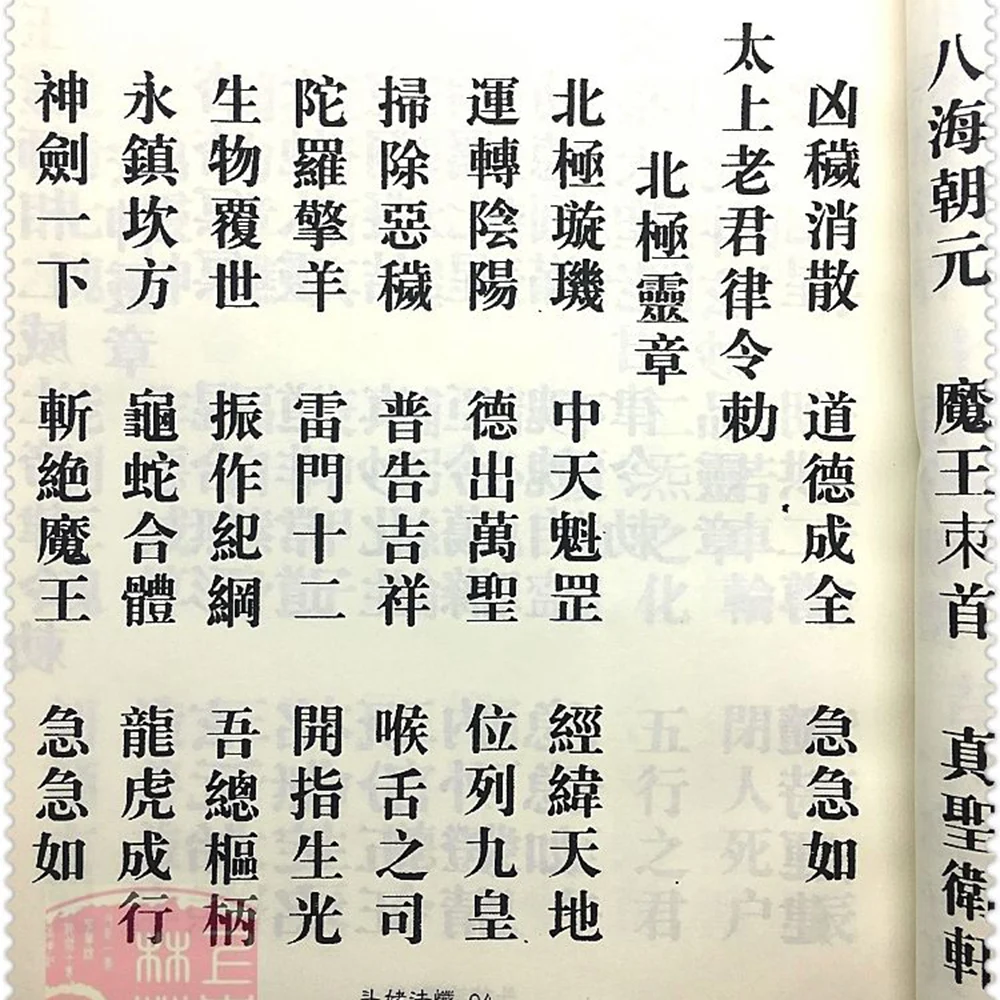 八海朝元　魔王朿首　真聖衛軒
凶穢消散　道德成全　急急如
太上老君律令勅
北極靈章
北極璇璣　中天魁罡　經緯天地
運轉陰陽　德出萬聖　位列九皇
掃除惡穢　普告吉祥　喉舌之司
陀羅擎羊　雷門十二　開指生光
生物覆世　振作紀綱　吾總樞柄
永鎮坎方　龜蛇合體　龍虎成行
神劍一下　斬絕魔王　急急如